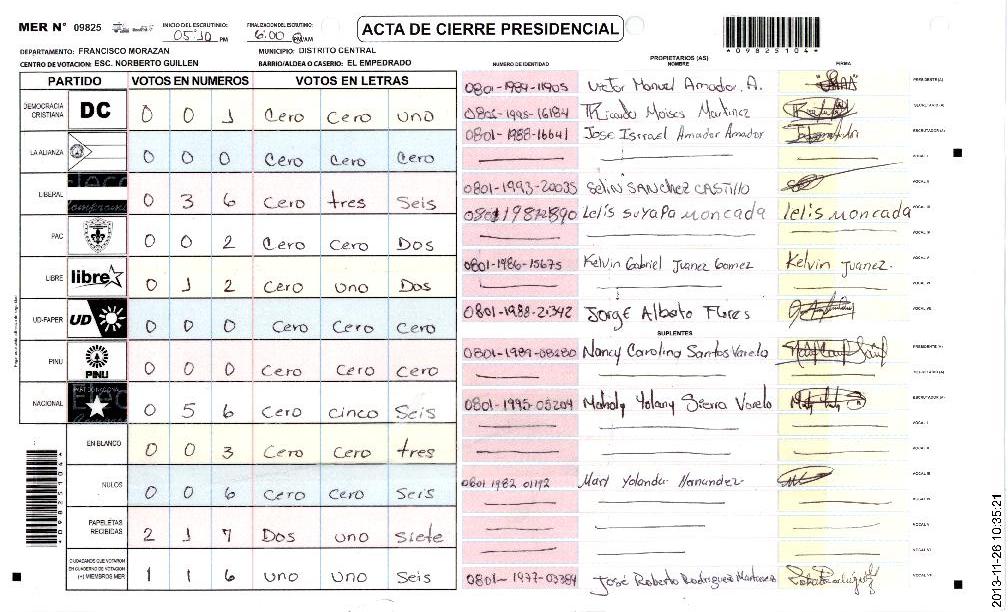 MER N° 09825
INICIO DEL ESCRUTINIO: 05:10 PM
FINALIZACIÓN DEL ESCRUTINIO: 6:00 PM/AM
ACTA DE CIERRE PRESIDENCIAL
*09825104*
DEPARTAMENTO: FRANCISCO MORAZAN
MUNICIPIO: DISTRITO CENTRAL
CENTRO DE VOTACION: ESC. NORBERTO GUILLEN
BARRIO/ALDEA O CASERIO: EL EMPEDRADO
PARTIDO VOTOS EN NUMEROS VOTOS EN LETRAS
DEMOCRACIA CRISTIANA DC 0 0 1 Cero Cero uno
LA ALIANZA 0 0 0 Cero Cero Cero
LIBERAL 0 3 6 Cero tres Seis
PAC 0 0 2 Cero Cero Dos
LIBRE libre 0 1 2 Cero uno Dos
UD-FAPER UD 0 0 0 Cero Cero Cero
PINU PINU 0 0 0 Cero Cero Cero
NACIONAL 0 5 6 Cero cinco Seis
EN BLANCO 0 0 3 Cero Cero tres
NULOS 0 0 6 Cero Cero Seis
PAPELETAS RECIBIDAS 2 1 7 Dos uno siete
CIUDADANOS QUE VOTARON EN CUADERNO DE VOTACION (+) MIEMBROS MER 1 1 6 uno uno Seis
*09825104*
PROPIETARIOS (AS)
NUMERO DE IDENTIDAD NOMBRE FIRMA
0801-1989-11905 Victor Manuel Amador. A. PRESIDENTE(A)
0801-1995-16184 Ricardo Moises Martinez SECRETARIO(A)
0801-1988-16641 Jose Isrrael Amador Amador ESCRUTADOR(A)
VOCAL I
0801-1993-20035 Selin SANCHEZ CASTILLO VOCAL II
Lelis suyapa moncada lelis moncada VOCAL III
VOCAL IV
0801-1986-15675 Kelvin Gabriel Juanez Gomez Kelvin Juanez. VOCAL V
VOCAL VI
0801-1988-21342 Jorge Alberto Flores VOCAL VII
SUPLENTES
0801-1989-08280 Nancy Carolina Santos Varela PRESIDENTE(A)
SECRETARIO(A)
0801-1995-05204 Yolany Sierra Varela ESCRUTADOR(A)
VOCAL I
VOCAL II
0801 1982 01192 Mary Yolanda Hernandez VOCAL III
VOCAL IV
VOCAL V
VOCAL VI
0801-1977-03384 José Roberto Rodriguez Martinez VOCAL VII
2013-11-26 10:35:21